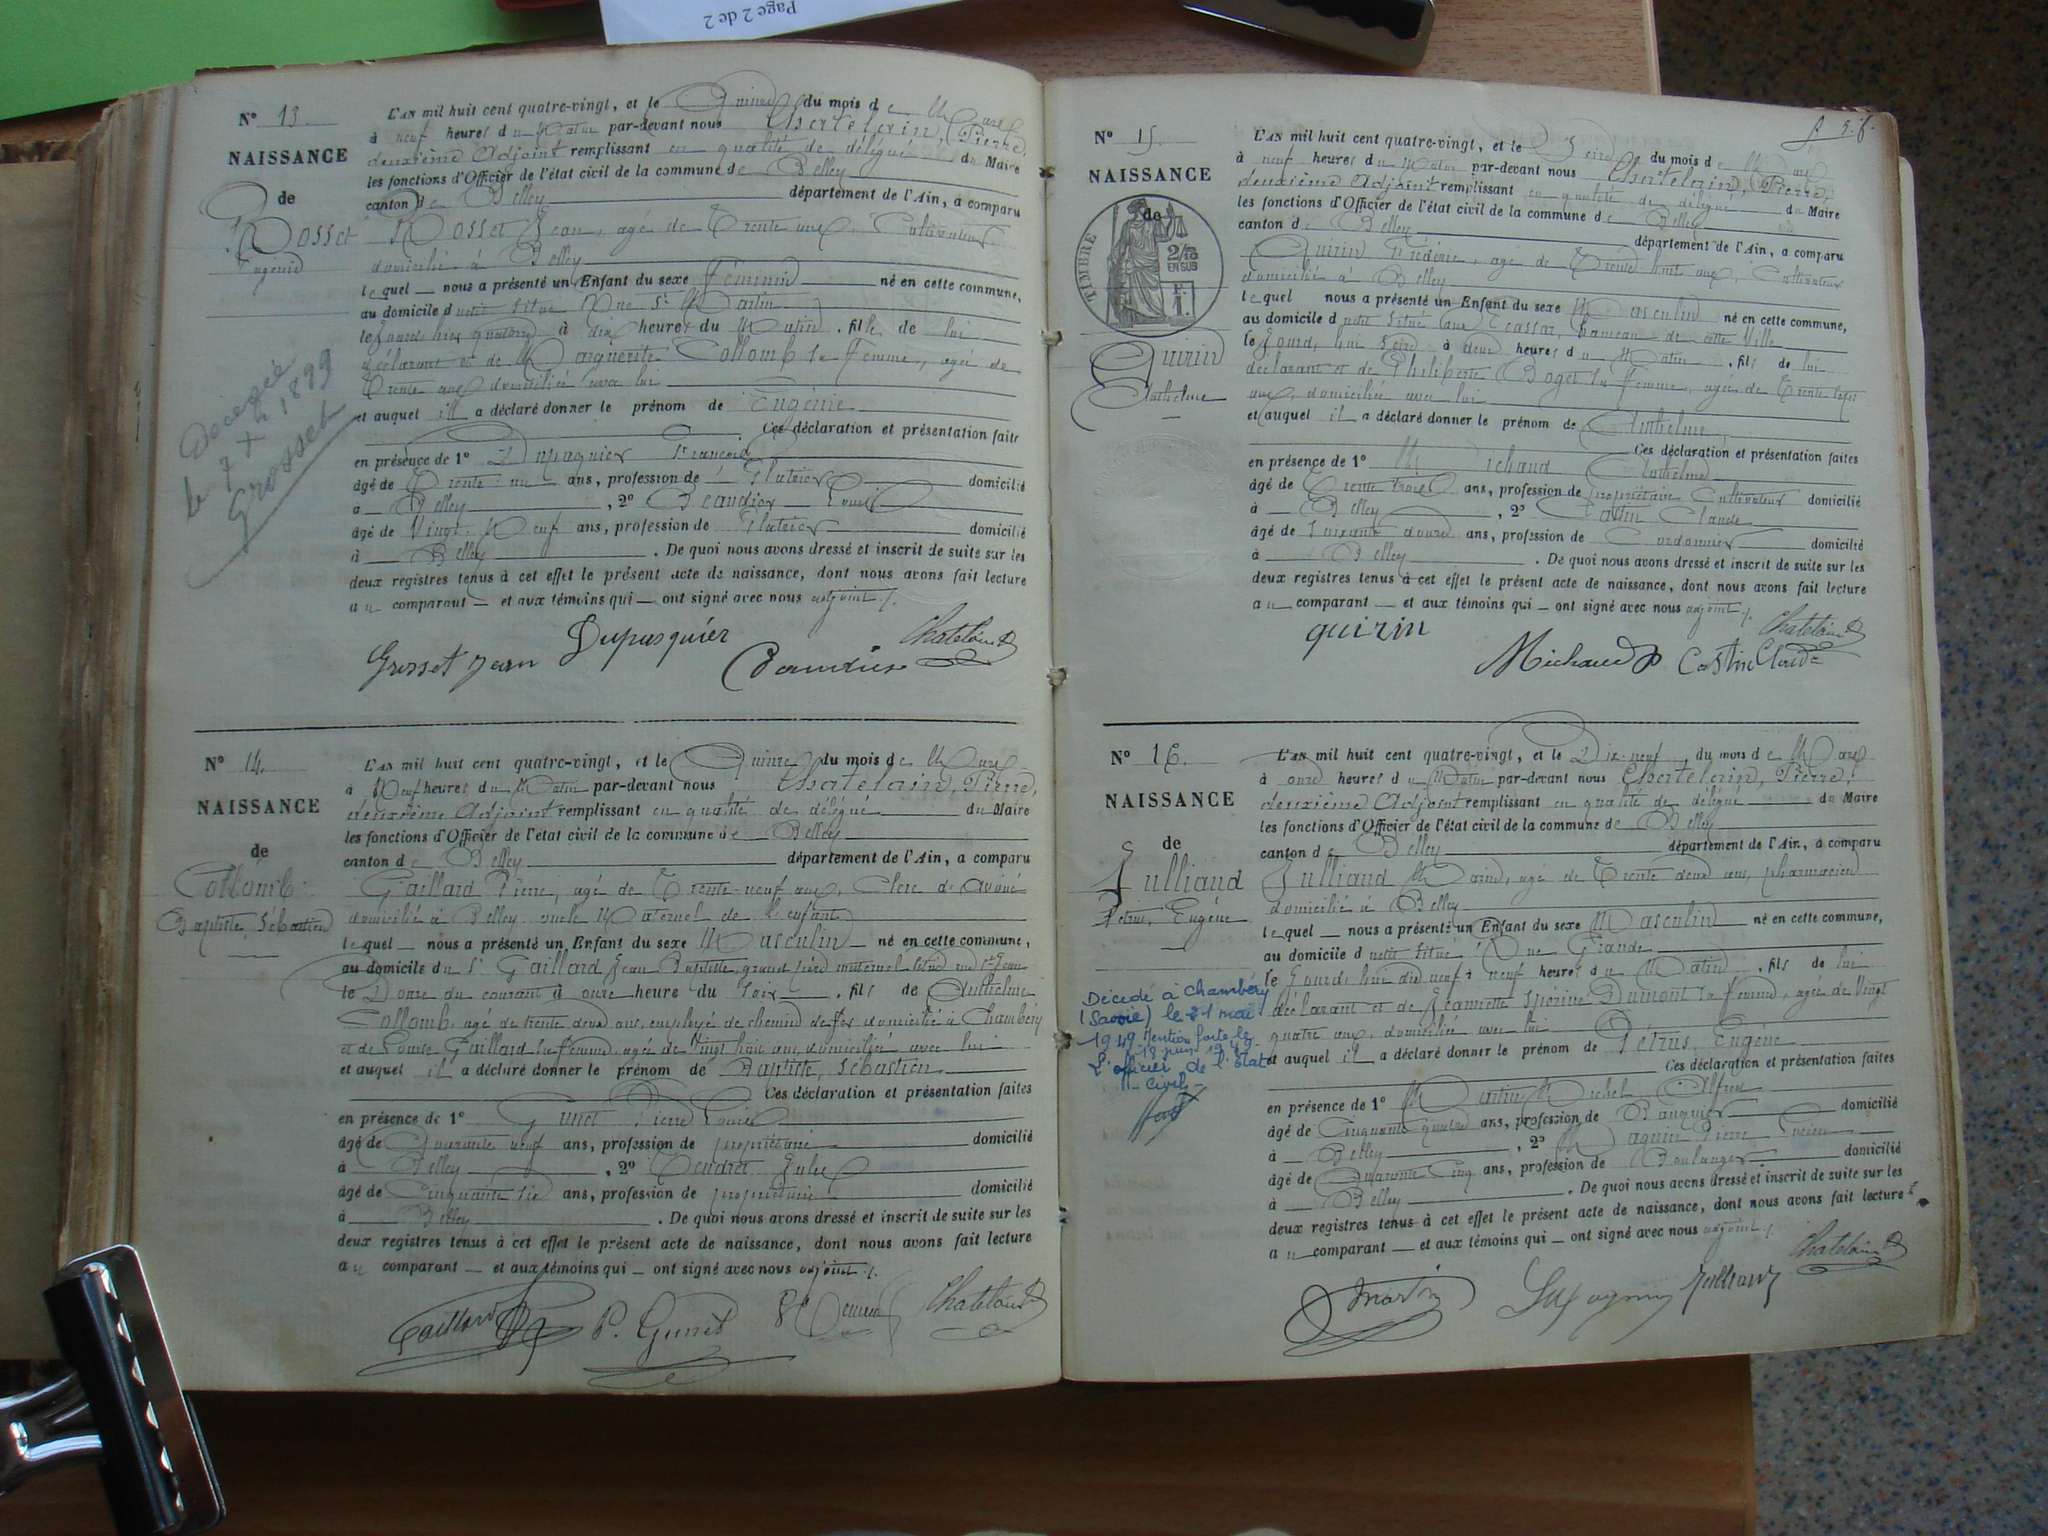 Page 2 de 2
N° 13.
NAISSANCE
de
Rosset
Eugénie
Décédée
le 7 Xbre 1899
Grosset
L'AN mil huit cent quatre-vingt, et le Quinze du mois de Mars
à neuf heures du Matin par-devant nous Chatelain, Pierre,
deuxième Adjoint remplissant en qualité de délégué du Maire
les fonctions d'Officier de l'état civil de la commune de Belley
canton de Belley département de l'Ain, a comparu
Rosset Jean, agé de Trente ans, Cultivateur
domicilié à Belley
lequel nous a présenté un Enfant du sexe féminin né en cette commune,
au domicile dudit situé Rue St Martin
le quatorze à dix heures du Matin, fille de lui
déclarant et de Marguerite Collomb sa femme, agée de
Trente ans domiciliée avec lui
et auquel il a déclaré donner le prénom de Eugénie
Ces déclaration et présentation faites
en présence de 1° Dupasquier François
âgé de Trente un ans, profession de Plâtrier domicilié
à Belley, 2° Beaudier Louis
âgé de Vingt Neuf ans, profession de Plâtrier domicilié
à Belley. De quoi nous avons dressé et inscrit de suite sur les
deux registres tenus à cet effet le présent acte de naissance, dont nous avons fait lecture
au comparant et aux témoins qui ont signé avec nous adjoint ./.
Grosset Jean Dupasquier Chatelain
N° 14.
NAISSANCE
de
Collomb
Baptiste, Sébastien
L'AN mil huit cent quatre-vingt, et le Quinze du mois de Mars
à Neuf heures du Matin par-devant nous Chatelain, Pierre,
deuxième Adjoint remplissant en qualité de délégué du Maire
les fonctions d'Officier de l'état civil de la commune de Belley
canton de Belley département de l'Ain, a comparu
Gaillard Pierre, agé de Trente-neuf ans, Clerc de avoué
domicilié à Belley oncle Maternel de l'enfant
lequel nous a présenté un Enfant du sexe Masculin né en cette commune,
au domicile du Sr Gaillard Jean Baptiste, grand père maternel situé rue St Jean
le Douze du courant à onze heure du Soir, fils de Anthelme
Collomb, agé de trente deux ans, employé de chemin de fer domicilié à Chambéry
et de Louise Gaillard sa femme, agée de Vingt huit ans, domiciliée avec lui
et auquel il a déclaré donner le prénom de Baptiste, Sébastien
Ces déclaration et présentation faites
en présence de 1° Gunet Pierre Louis
âgé de Quarante neuf ans, profession de propriétaire domicilié
à Belley, 2° Jules
âgé de Cinquante six ans, profession de propriétaire domicilié
à Belley. De quoi nous avons dressé et inscrit de suite sur les
deux registres tenus à cet effet le présent acte de naissance, dont nous avons fait lecture
au comparant et aux témoins qui ont signé avec nous adjoint ./.
Gaillard P. Gunet Chatelain
N° 15.
NAISSANCE
de
TIMBRE
2/10
EN SUS
F.
1.
Quirin
Anthelme
L'AN mil huit cent quatre-vingt, et le Seize du mois de Mars
à neuf heures du Matin par-devant nous Chatelain, Pierre,
deuxième Adjoint remplissant en qualité de délégué du Maire
les fonctions d'Officier de l'état civil de la commune de Belley
canton de Belley département de l'Ain, a comparu
Quirin Frédéric, agé de Trente huit ans, Cultivateur
domicilié à Belley
lequel nous a présenté un Enfant du sexe Masculin né en cette commune,
au domicile dudit situé aux Ecassaz, hameau de cette Ville
le Jourd'hui Seize à deux heures du Matin, fils de lui
déclarant et de Philiberte Boget sa femme, agée de Trente sept
ans, domiciliée avec lui
et auquel il a déclaré donner le prénom de Anthelme
Ces déclaration et présentation faites
en présence de 1° Michaud Anthelme
âgé de Trente trois ans, profession de propriétaire Cultivateur domicilié
à Belley, 2° Castin Claude
âgé de Soixante douze ans, profession de Cordonnier domicilié
à Belley. De quoi nous avons dressé et inscrit de suite sur les
deux registres tenus à cet effet le présent acte de naissance, dont nous avons fait lecture
au comparant et aux témoins qui ont signé avec nous adjoint ./.
quirin Michaud Castin Claude Chatelain
N° 16.
NAISSANCE
de
Julliand
Pétrus, Eugène
Décédé à Chambéry
(Savoie) le 21 mai
1949 Mention faite le
18 juin 1949
L'officier de l'état
civil
L'AN mil huit cent quatre-vingt, et le Dix-neuf du mois de Mars
à onze heures du Matin par-devant nous Chatelain, Pierre,
deuxième Adjoint remplissant en qualité de délégué du Maire
les fonctions d'Officier de l'état civil de la commune de Belley
canton de Belley département de l'Ain, a comparu
Julliand Marie, agé de Trente deux ans, pharmacien
domicilié à Belley
lequel nous a présenté un Enfant du sexe Masculin né en cette commune,
au domicile dudit situé Rue Grande
le Jourd'hui dix neuf à neuf heures du Matin, fils de lui
déclarant et de Jeannette Dumont sa femme, agée de Vingt
quatre ans, domiciliée avec lui
et auquel il a déclaré donner le prénom de Pétrus, Eugène
Ces déclaration et présentation faites
en présence de 1° Martin Michel Alfred
âgé de Cinquante quatre ans, profession de Banquier domicilié
à Belley, 2° Magnin Pierre Lucien
âgé de Quarante Cinq ans, profession de Boulanger domicilié
à Belley. De quoi nous avons dressé et inscrit de suite sur les
deux registres tenus à cet effet le présent acte de naissance, dont nous avons fait lecture
au comparant et aux témoins qui ont signé avec nous adjoint ./.
Martin Julliand Chatelain